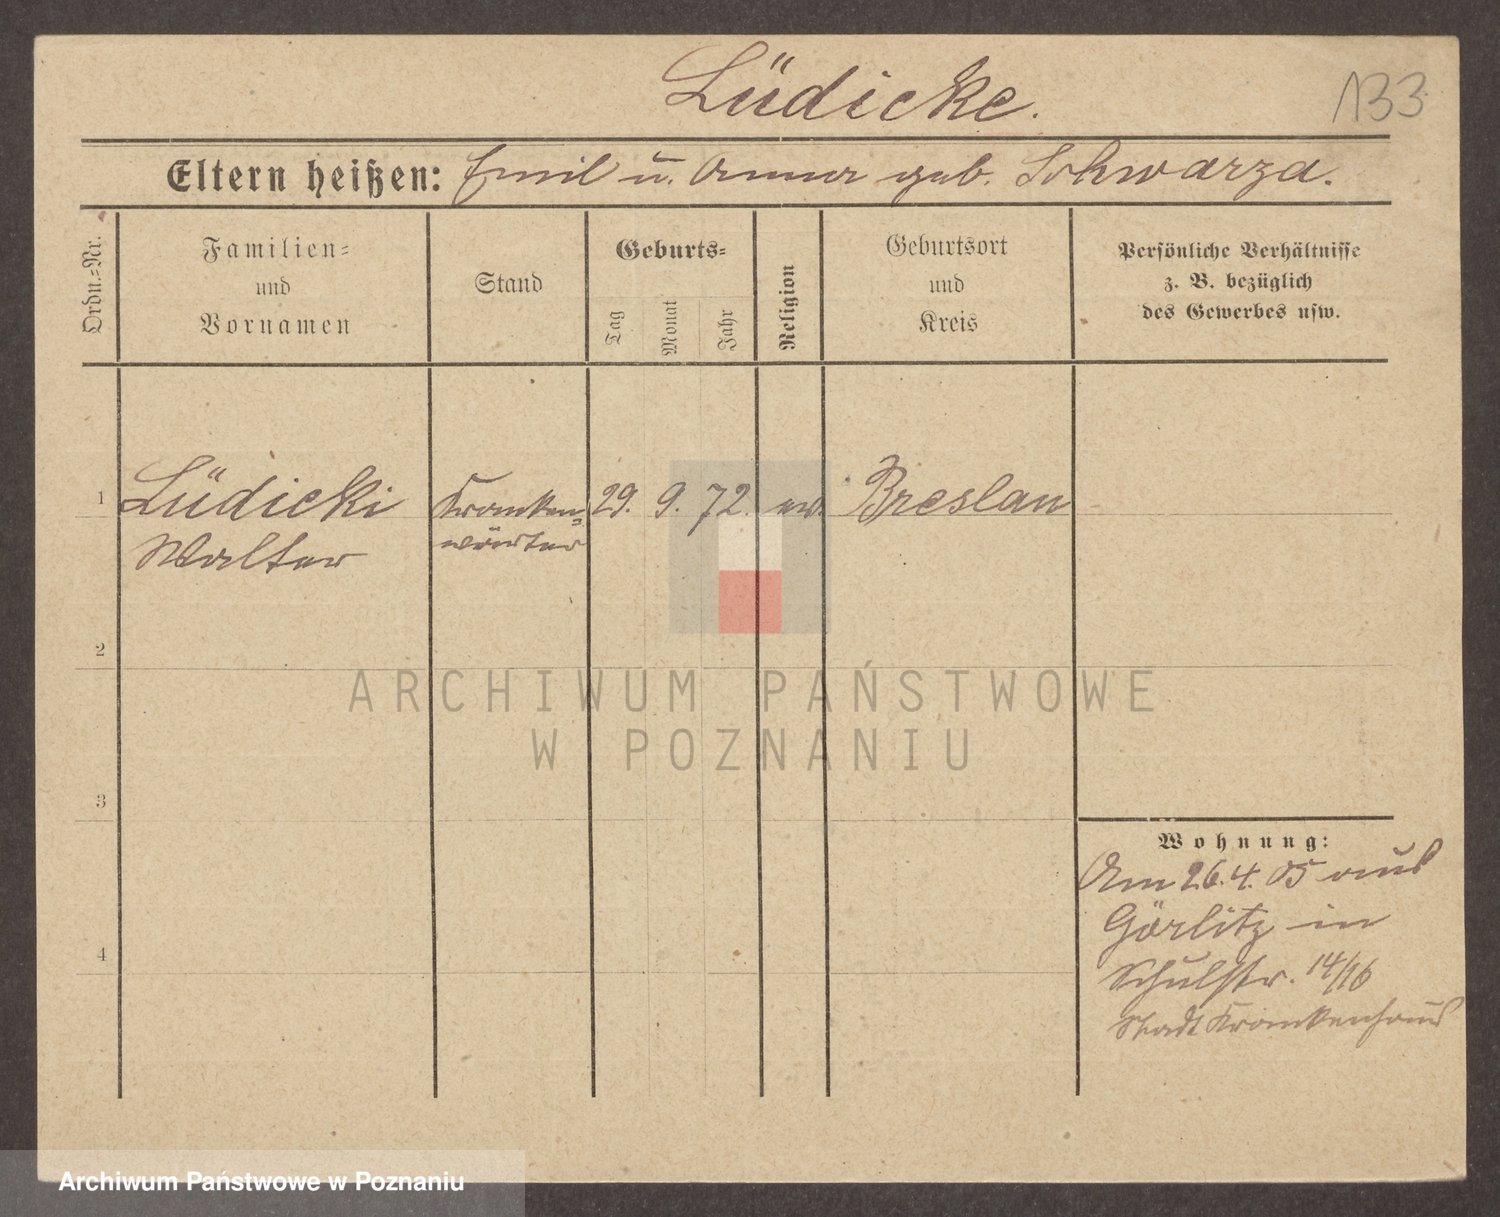 Lüdicke.
133
Eltern heißen: Emil u. Anna geb. Schwarza.
Ordn.-Nr.
Familien-
und
Vornamen
Stand
Geburts-
Tag
Monat
Jahr
Religion
Geburtsort
und
Kreis
Persönliche Verhältnisse
z. B. bezüglich
des Gewerbes usw.
1
Lüdicki
Walter
Kranken=
wärter
29. 9. 72. ev. Breslau
2
3
4
Wohnung:
Am 26.4.05 aus
Görlitz in
Schulstr. 14/16
Stadt Krankenhaus
ARCHIWUM PAŃSTWOWE
W POZNANIU
Archiwum Państwowe w Poznaniu